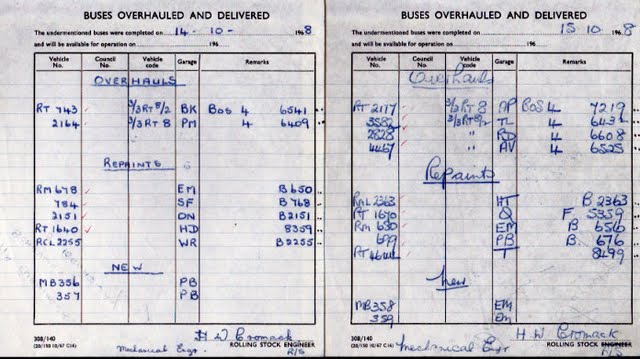 BUSES OVERHAULED AND DELIVERED
The undermentioned buses were completed on 14-10- 1968
and will be available for operation on 196
Vehicle No. Council No. Vehicle code Garage Remarks
OVERHAULS
RT 743 3/3RT8/2 BK BOS 4 6541
2164 3/3RT8 PM 4 6409
REPAINTS
RM 678 EM B650
784 SF B768
2151 ON B2151
RT 1640 HD 8359
RCL 2255 WR B2255
NEW
MB356 PB
357 PB
308/140
(20/150 10/67 C16)
H W Cromack
Mechanical Engr. ROLLING STOCK ENGINEER
R/S
BUSES OVERHAULED AND DELIVERED
The undermentioned buses were completed on 15 10 1968
and will be available for operation on 196
Vehicle No. Council No. Vehicle code Garage Remarks
Overhauls
RT 2177 3/3RT8 AP BOS 4 7219
3582 3/3RT8/2 TL 4 6431
2828 " RD 4 6608
4467 " AV 4 6525
Repaints
RML 2363 HT B 2363
RT 1670 Q F 5359
RM 630 EM B 656
699 PB B 676
RT T 8499
New
MB358 EM
359 Em
308/140
(20/150 10/67 C16)
H W Cromack
Mechanical Engr ROLLING STOCK ENGINEER
R/S